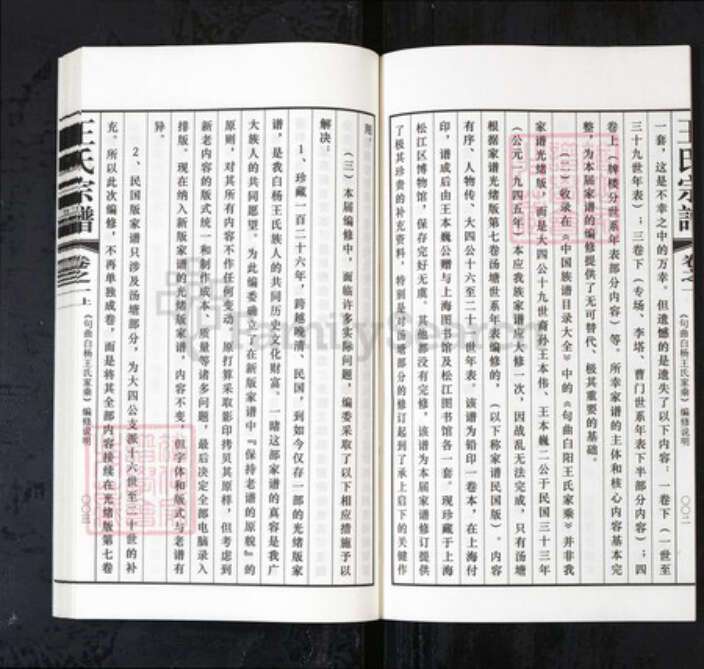 王氏宗谱
卷之一上
《句曲白杨王氏家乘》编修说明
〇〇二
一套，这是不幸之中的万幸。但遗憾的是遗失了以下内容：一卷下（一世至
三十九世年表）；三卷下（专场、李塔、曹门世系年表下半部分内容）；四
卷上（牌楼分世系年表部分内容）等。所幸家谱的主体和核心内容基本完
整，为本届家谱的编修提供了无可替代、极其重要的基础。
（二）收录在《中国族谱目录大全》中的《句曲白阳王氏家乘》并非我
家谱光绪版，而是大四公十九世裔孙王本伟、王本巍二公于民国三十三年
（公元一九四五年）本应我族家谱大修一次，因战乱无法完成，只有汤塘
根据家谱光绪版第七卷汤塘世系年表编修的，（以下称家谱民国版）。内容
有序、人物传、大四公十六至二十一世年表。该谱为铅印一卷本，在上海付
印，谱成后由王本巍公赠与上海图书馆及松江图书馆各一套。现珍藏于上海
松江区博物馆，保存完好无虞。其他都没有完修，该谱为本届家谱修订提供
了极其珍贵的补充资料，特别是对汤塘部分的修订起到了承上启下的关键作
用。
（三）本届编修中，面临许多实际问题，编委采取了以下相应措施予以
解决：
1、珍藏一百二十六年，跨越晚清、民国，到如今仅存一部的光绪版家
谱，是我白杨王氏族人的共同历史文化财富。一睹这部家谱的真容是我广
大族人的共同愿望。为此编委确立了在新版家谱中『保持老谱的原貌』的
原则，对其所有内容不作任何变动。原打算采取影印拷贝其原样，但考虑到
新老内容的版式统一和制作成本、质量等诸多问题，最后决定全部电脑录入
排版。现在纳入新版家谱的光绪版家谱，内容不变，但字体和版式与老谱有
异。
2、民国版家谱只涉及汤塘部分，为大四公支派十六世至二十世的补
充。所以此次编修，不再单独成卷，而是将其全部内容接续在光绪版第七卷
王氏宗谱
卷之一上
《句曲白杨王氏家乘》编修说明
〇〇三
FamilySearch